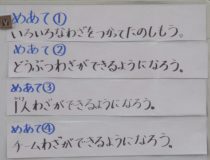 めあて①
いろいろなわざをつかってたのしもう。
めあて②
どうぶつわざができるようになろう。
めあて③
1人わざができるようになろう。
めあて④
チームわざができるようになろう。